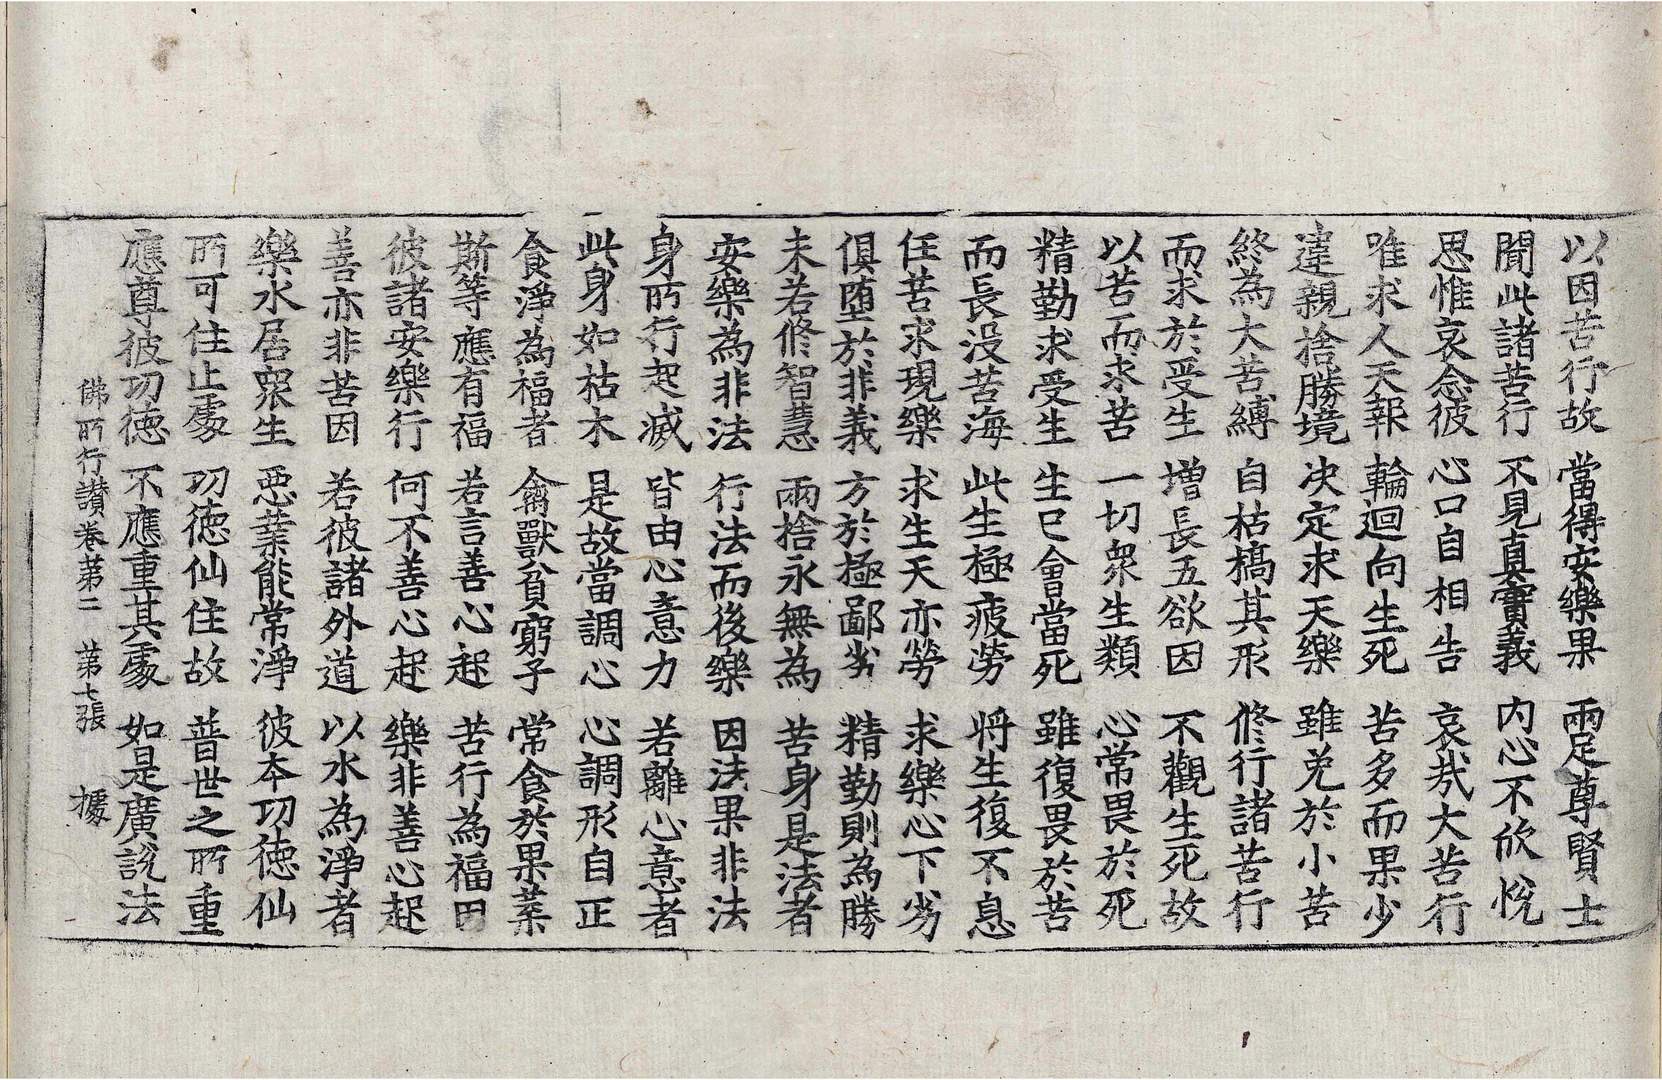 以因苦行故　當得安樂果　兩足尊賢士
聞此諸苦行　不見真實義　内心不欣悅
思惟哀念彼　心口自相告　哀㢤大苦行
唯求人天報　輪迴向生死　苦多而果少
違親捨勝境　决定求天樂　雖免於小苦
終為大苦縛　自枯槁其形　修行諸苦行
而求於受生　增長五欲因　不觀生死故
以苦而求苦　一切衆生類　心常畏於死
精勤求受生　生已會當死　雖復畏於苦
而長没苦海　此生極疲勞　將生復不息
任苦求現樂　求生天亦勞　求樂心下劣
俱墮於非義　方於極鄙劣　精勤則為勝
未若修智慧　兩捨永無為　苦身是法者
安樂為非法　行法而後樂　因法果非法
身所行起滅　皆由心意力　若離心意者
此身如枯木　是故當調心　心調形自正
食淨為福者　禽獸貧窮子　常食於果菜
斯等應有福　若言善心起　苦行為福因
彼諸安樂行　何不善心起　樂非善心起
善亦非苦因　若彼諸外道　以水為淨者
樂水居衆生　惡業能常淨　彼本功德仙
所可住止處　功德仙住故　普世之所重
應尊彼功德　不應重其處　如是廣說法
佛所行讃卷第二　第七張　據